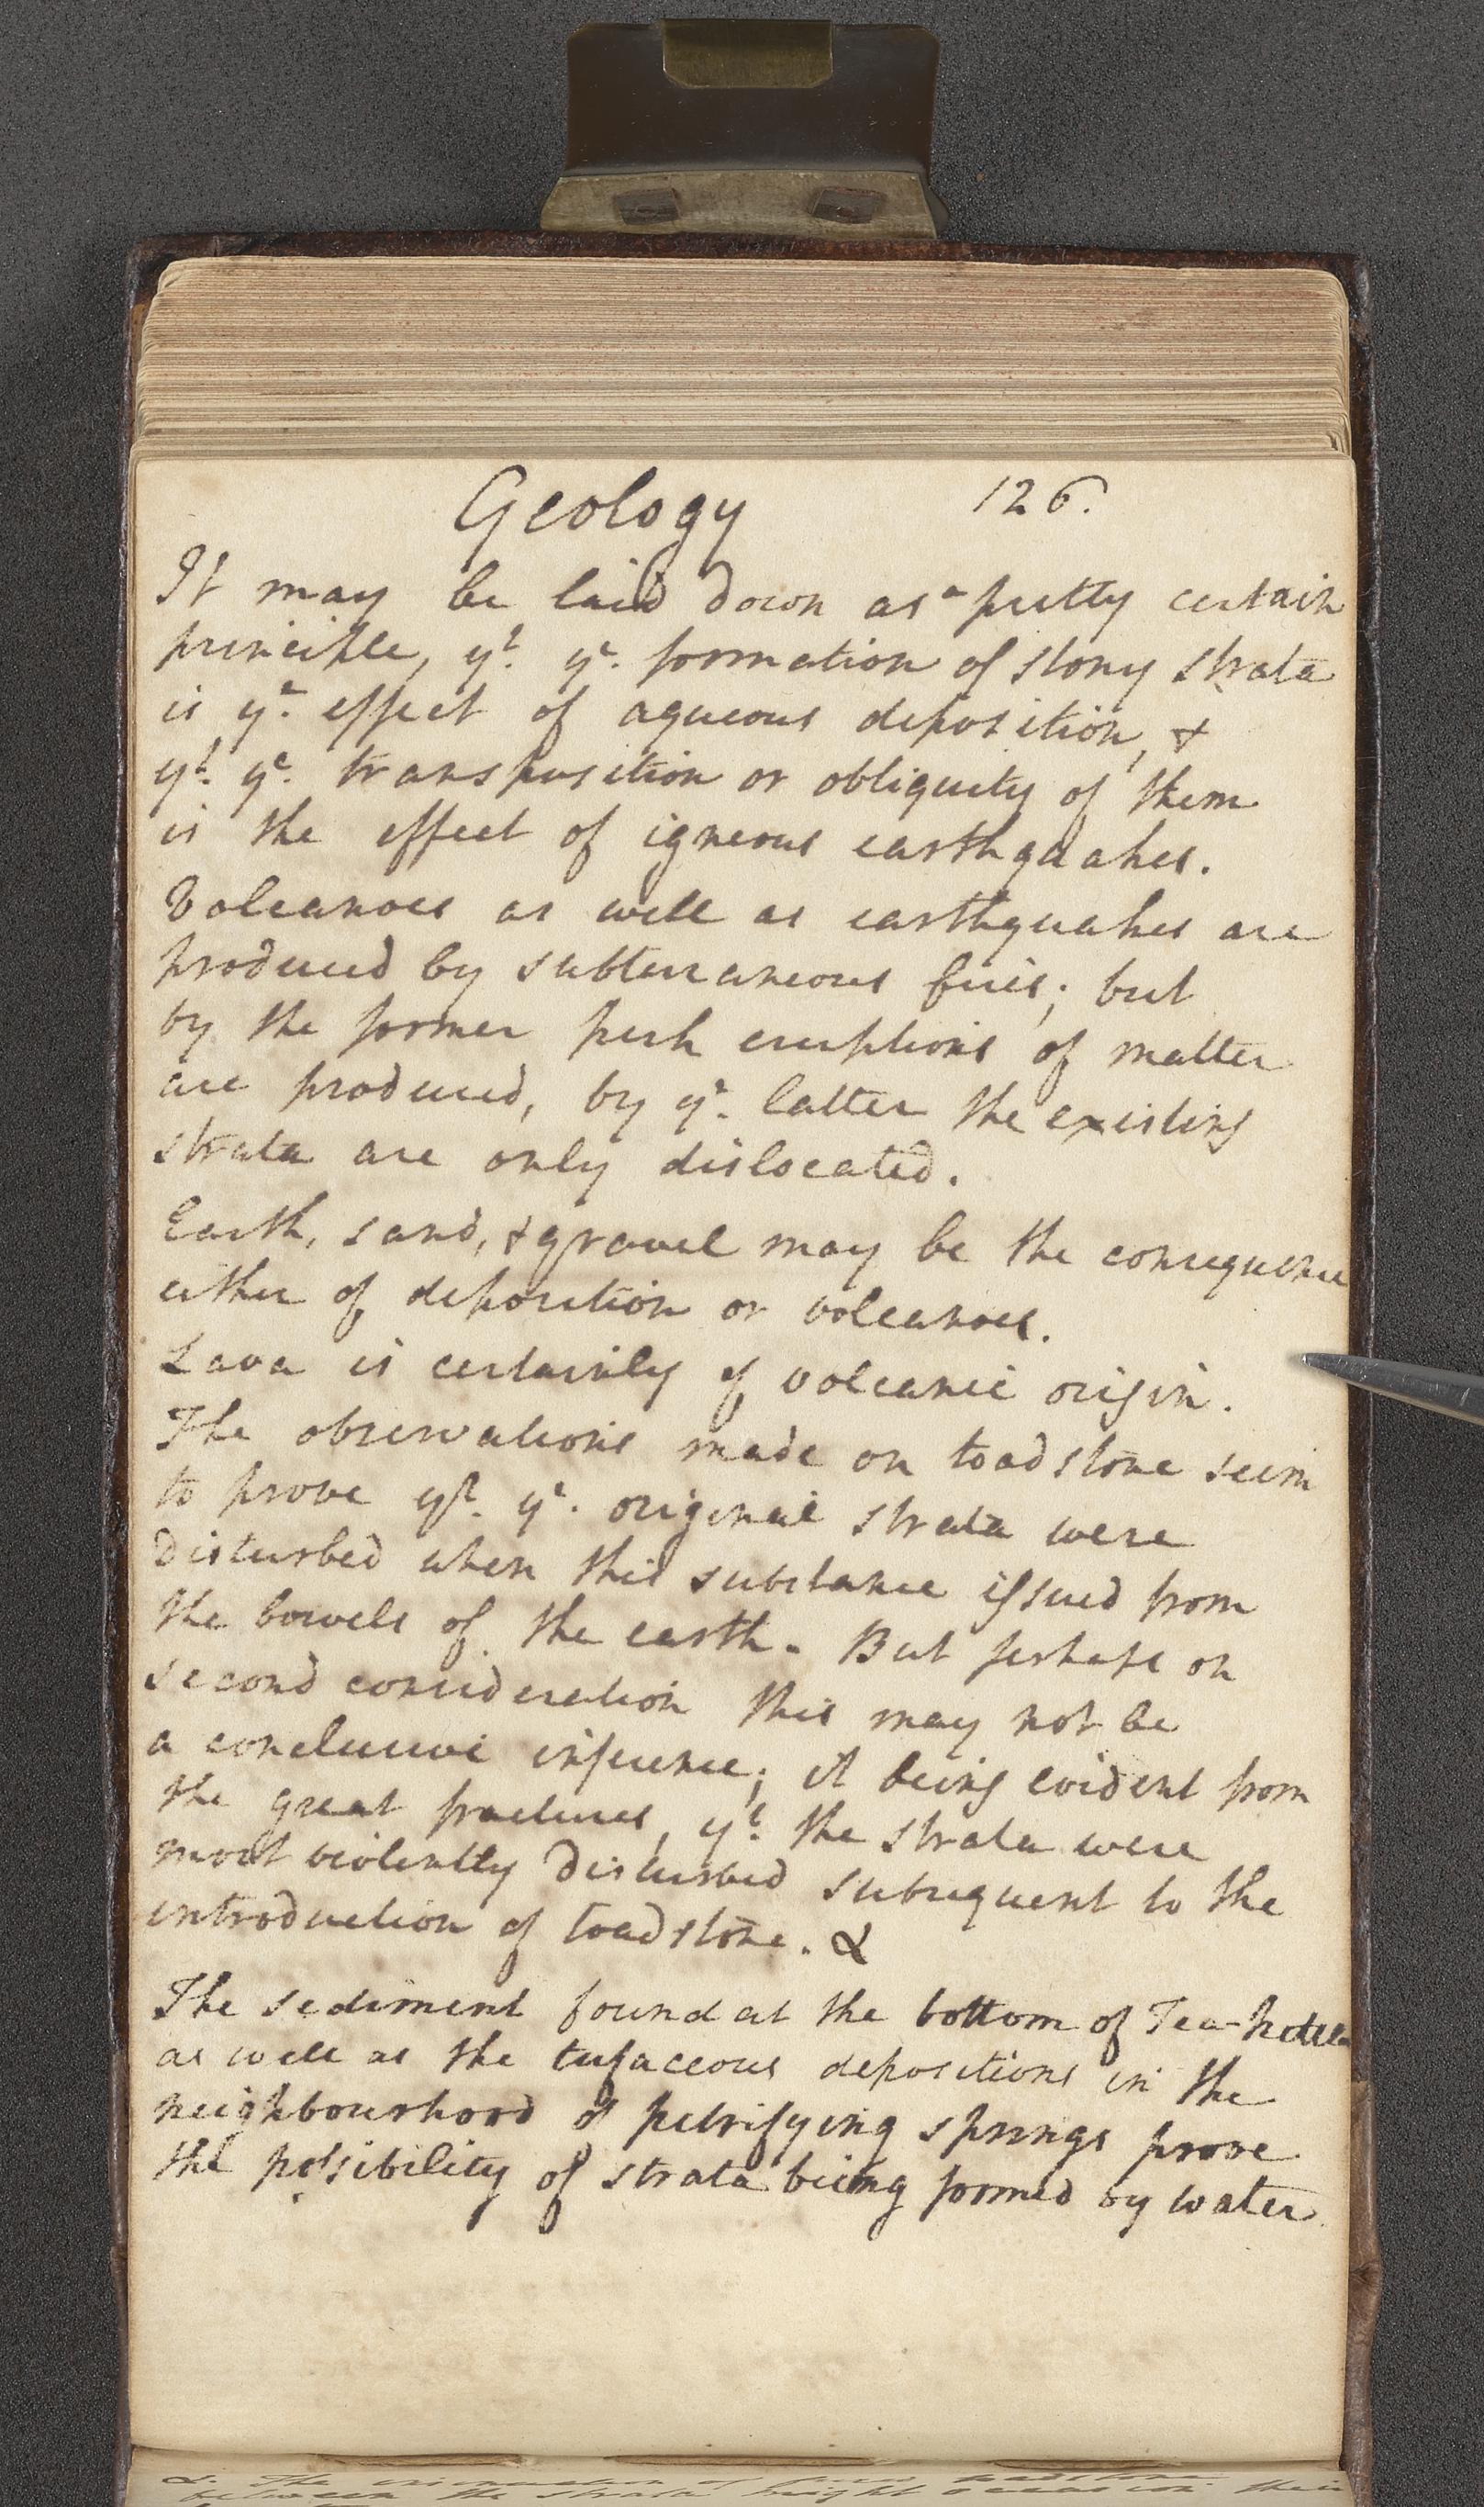 Geology 126.
It may be laid down as a pretty certain
principle, yt. ye. formation of stony strata
is ye. effect of aqueous deposition, &
yt. ye. transposition or obliquity of them
is the effect of igneous earthquakes.
Volcanoes as well as earthquakes are
produced by subterraneous fires; but
by the former fresh eruptions of matter
are produced, by ye. latter the existing
strata are only dislocated.
Earth, sand, & gravel may be the consequence
either of deposition or volcanoes.
Lava is certainly of volcanic origin.
The observations made on toadstone seem
to prove yt. ye. original strata were
disturbed when this substance issued from
the bowels of the earth. But perhaps on
second consideration this may not be
a conclusive inference; it being evident from
the great fractures, yt. the strata were
most violently disturbed subsequent to the
introduction of toadstone. &
The sediment found at the bottom of Tea-kettles
as well as the tufaceous depositions in the
neighbourhood of petrifying springs prove
the possibility of strata being formed by water
between the strata might occasion their